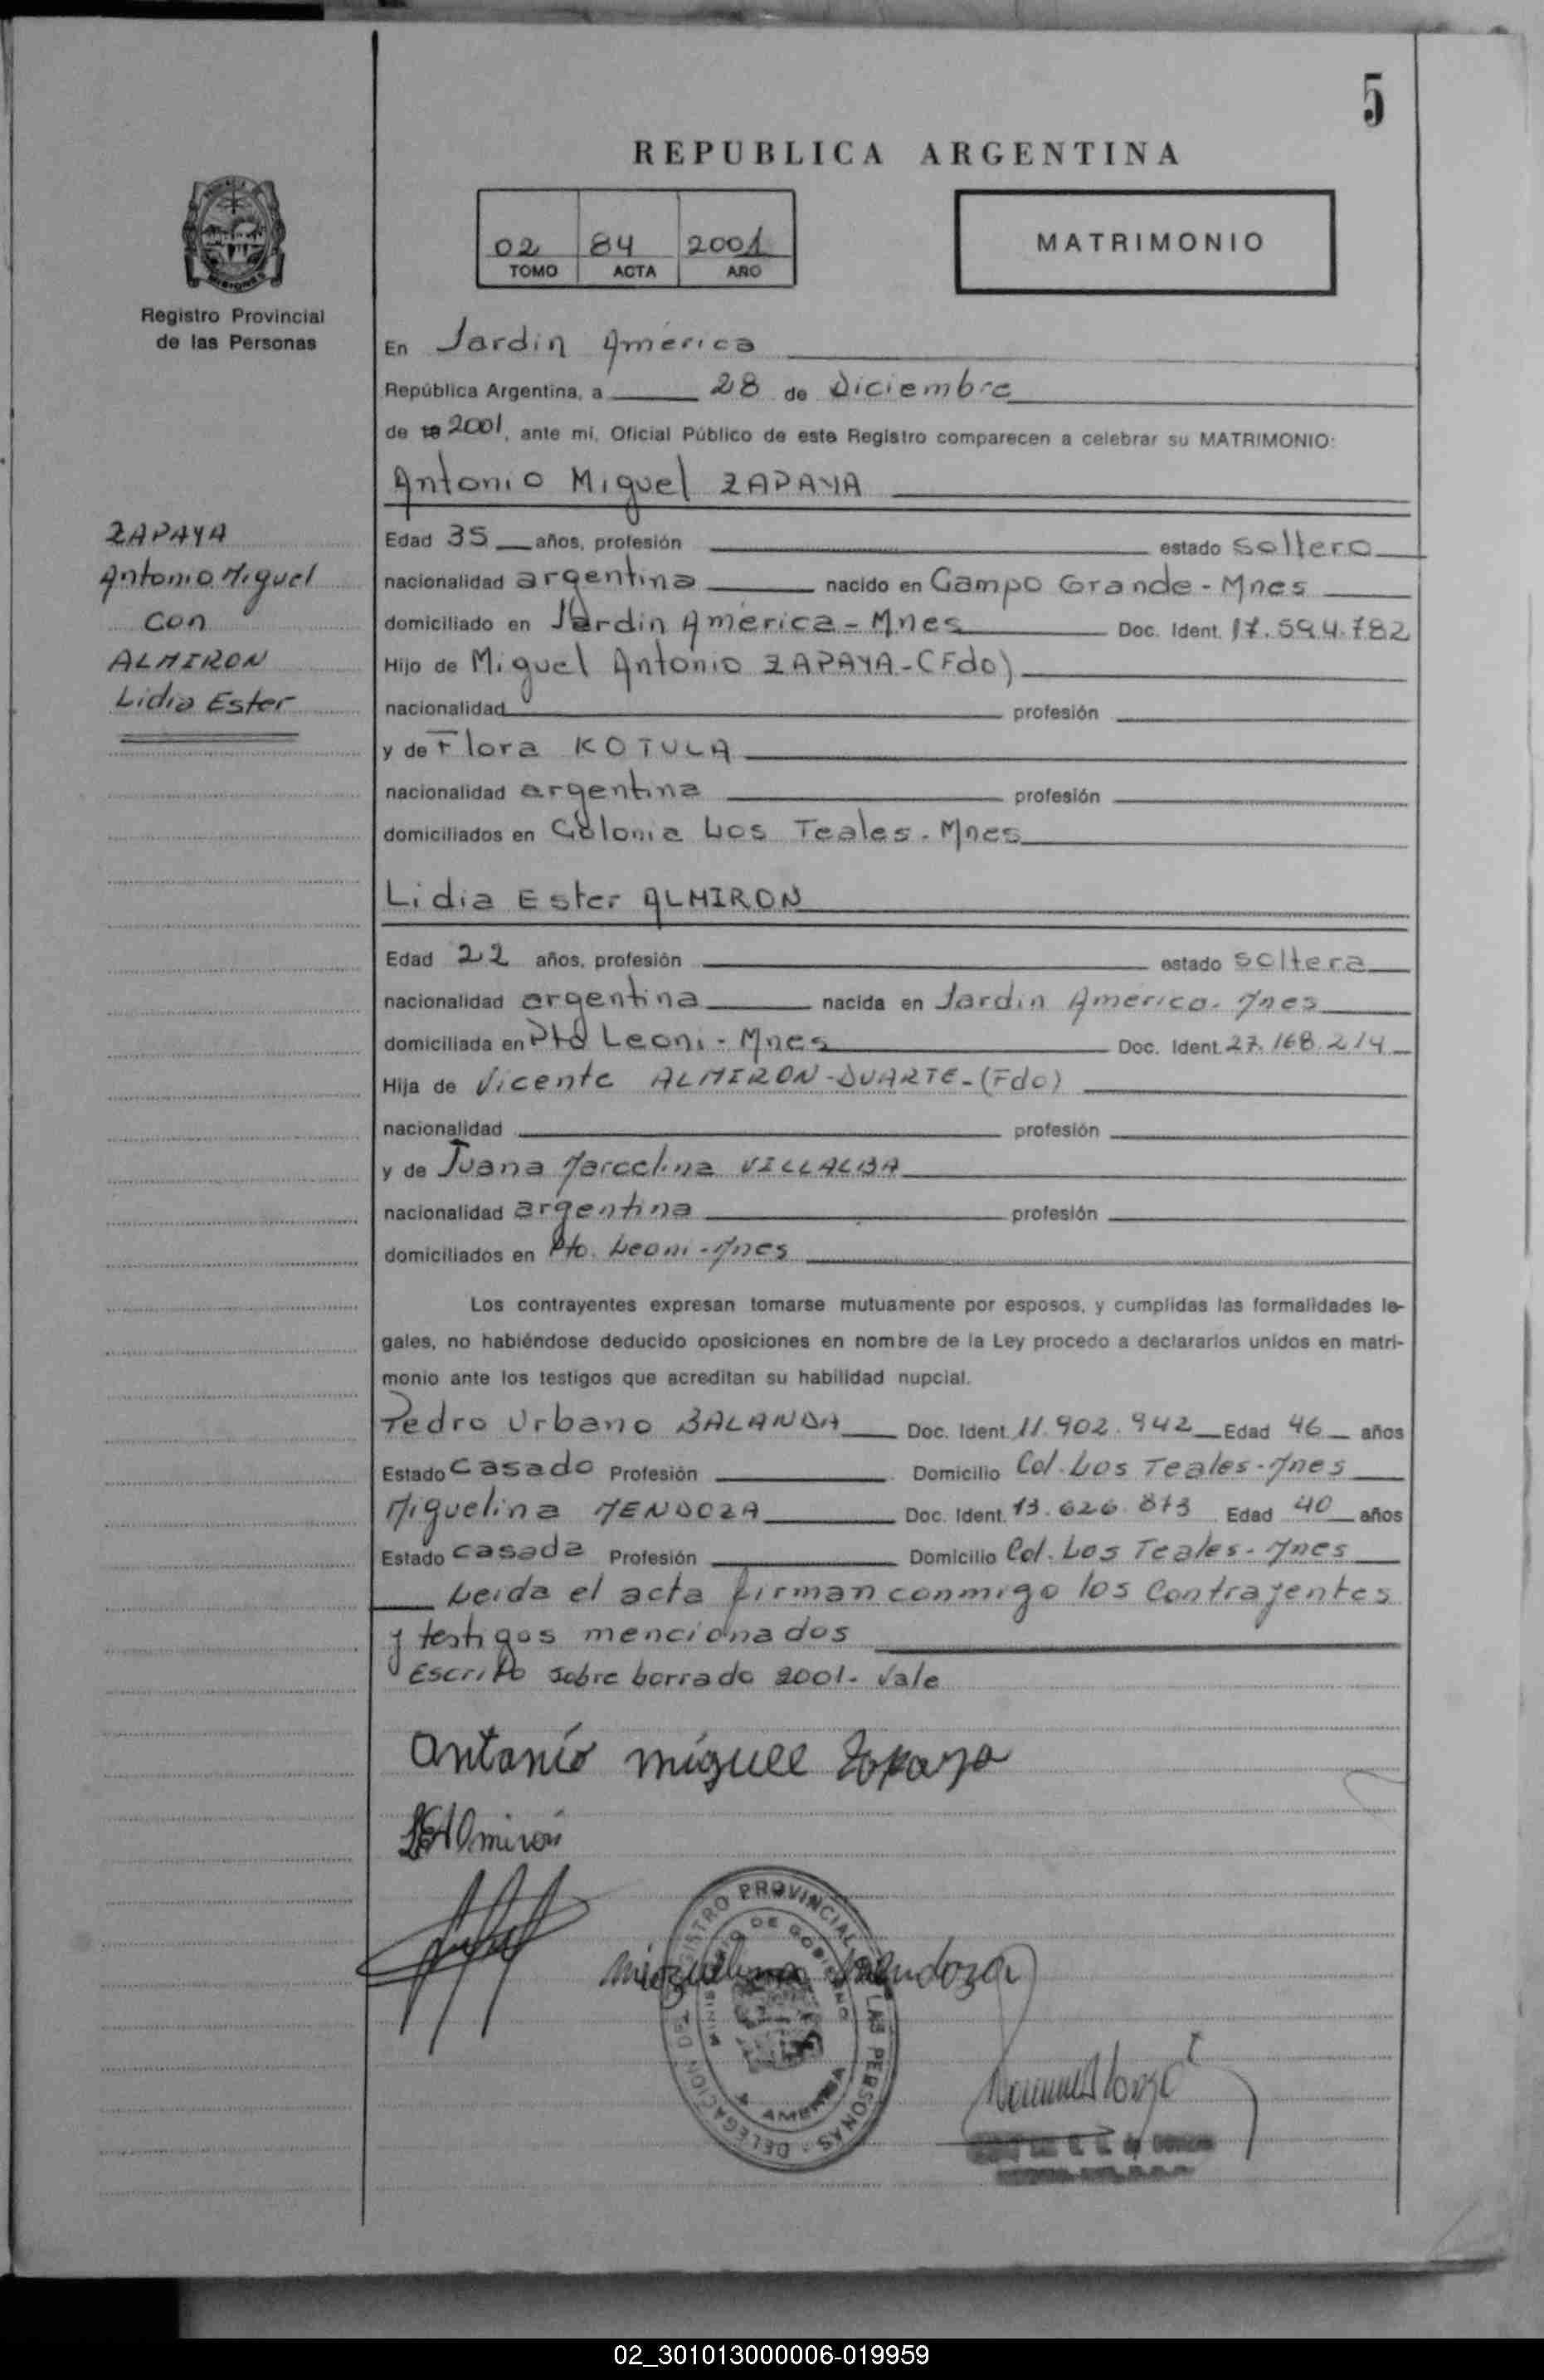 5
REPUBLICA ARGENTINA
02 84 2001
TOMO ACTA AÑO
MATRIMONIO
Registro Provincial
de las Personas
En Jardin América
República Argentina, a 28 de Diciembre
de 19 2001, ante mí, Oficial Público de este Registro comparecen a celebrar su MATRIMONIO:
Antonio Miguel ZAPAYA
ZAPAYA
Antonio Miguel
con
ALMIRON
Lidia Ester
Edad 35 años, profesión estado soltero
nacionalidad argentina nacido en Campo Grande - Mnes
domiciliado en Jardin América - Mnes Doc. Ident. 17.594.782
Hijo de Miguel Antonio ZAPAYA - (Fdo)
nacionalidad profesión
y de Flora KOTULA
nacionalidad argentina profesión
domiciliados en Colonia Los Teales - Mnes
Lidia Ester ALMIRON
Edad 22 años, profesión estado soltera
nacionalidad argentina nacida en Jardin América - Mnes
domiciliada en Pto Leoni - Mnes Doc. Ident. 27.168.214
Hija de Vicente ALMIRON - DUARTE - (Fdo)
nacionalidad profesión
y de Juana Marcelina VILLALBA
nacionalidad argentina profesión
domiciliados en Pto. Leoni - Mnes
Los contrayentes expresan tomarse mutuamente por esposos, y cumplidas las formalidades le-
gales, no habiéndose deducido oposiciones en nombre de la Ley procedo a declararlos unidos en matri-
monio ante los testigos que acreditan su habilidad nupcial.
Pedro Urbano BALANDA Doc. Ident. 11.902.942 Edad 46 años
Estado casado Profesión Domicilio Col. Los Teales - Mnes
Miguelina MENDOZA Doc. Ident. 13.626.873 Edad 40 años
Estado casada Profesión Domicilio Col. Los Teales - Mnes
Leida el acta firman conmigo los contrayentes
y testigos mencionados
Escrito sobre borrado 2001 - Vale
Antonio miguel Zapaya
LEAlmirón
miguelina mendoza
DELEGACION DEL REGISTRO PROVINCIAL DE LAS PERSONAS
MINISTERIO DE GOBIERNO
AMERICA
02_301013000006-019959